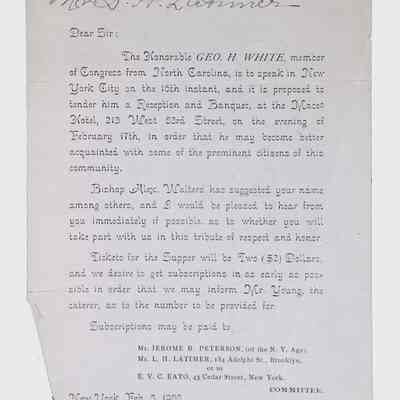 L. H. Latimer
Dear Sir:
The Honorable GEO. H WHITE, member
of Congress from North Carolina, is to speak in New
York City on the 16th instant, and it is proposed to
tender him a Reception and Banquet, at the Maceo
Hotel, 213 West 53rd Street, on the evening of
February 17th, in order that he may become better
acquainted with some of the prominent citizens of this
community.
Bishop Alex. Walters has suggested your name
among others, and I would be pleased to hear from
you immediately if possible, as to whether you will
take part with us in this tribute of respect and honor.
Tickets for the Supper will be Two ($2) Dollars,
and we desire to get subscriptions in as early as pos-
sible in order that we may inform Mr. Young, the
caterer, as to the number to be provided for.
Subscriptions may be paid to,
Mr. JEROME B. PETERSON, (of the N. Y. Age);
Mr. L. H. LATIMER, 184 Adelphi St., Brooklyn,
or to
E. V. C. EATO, 43 Cedar Street, New York.
COMMITTEE.
New York, Feb.